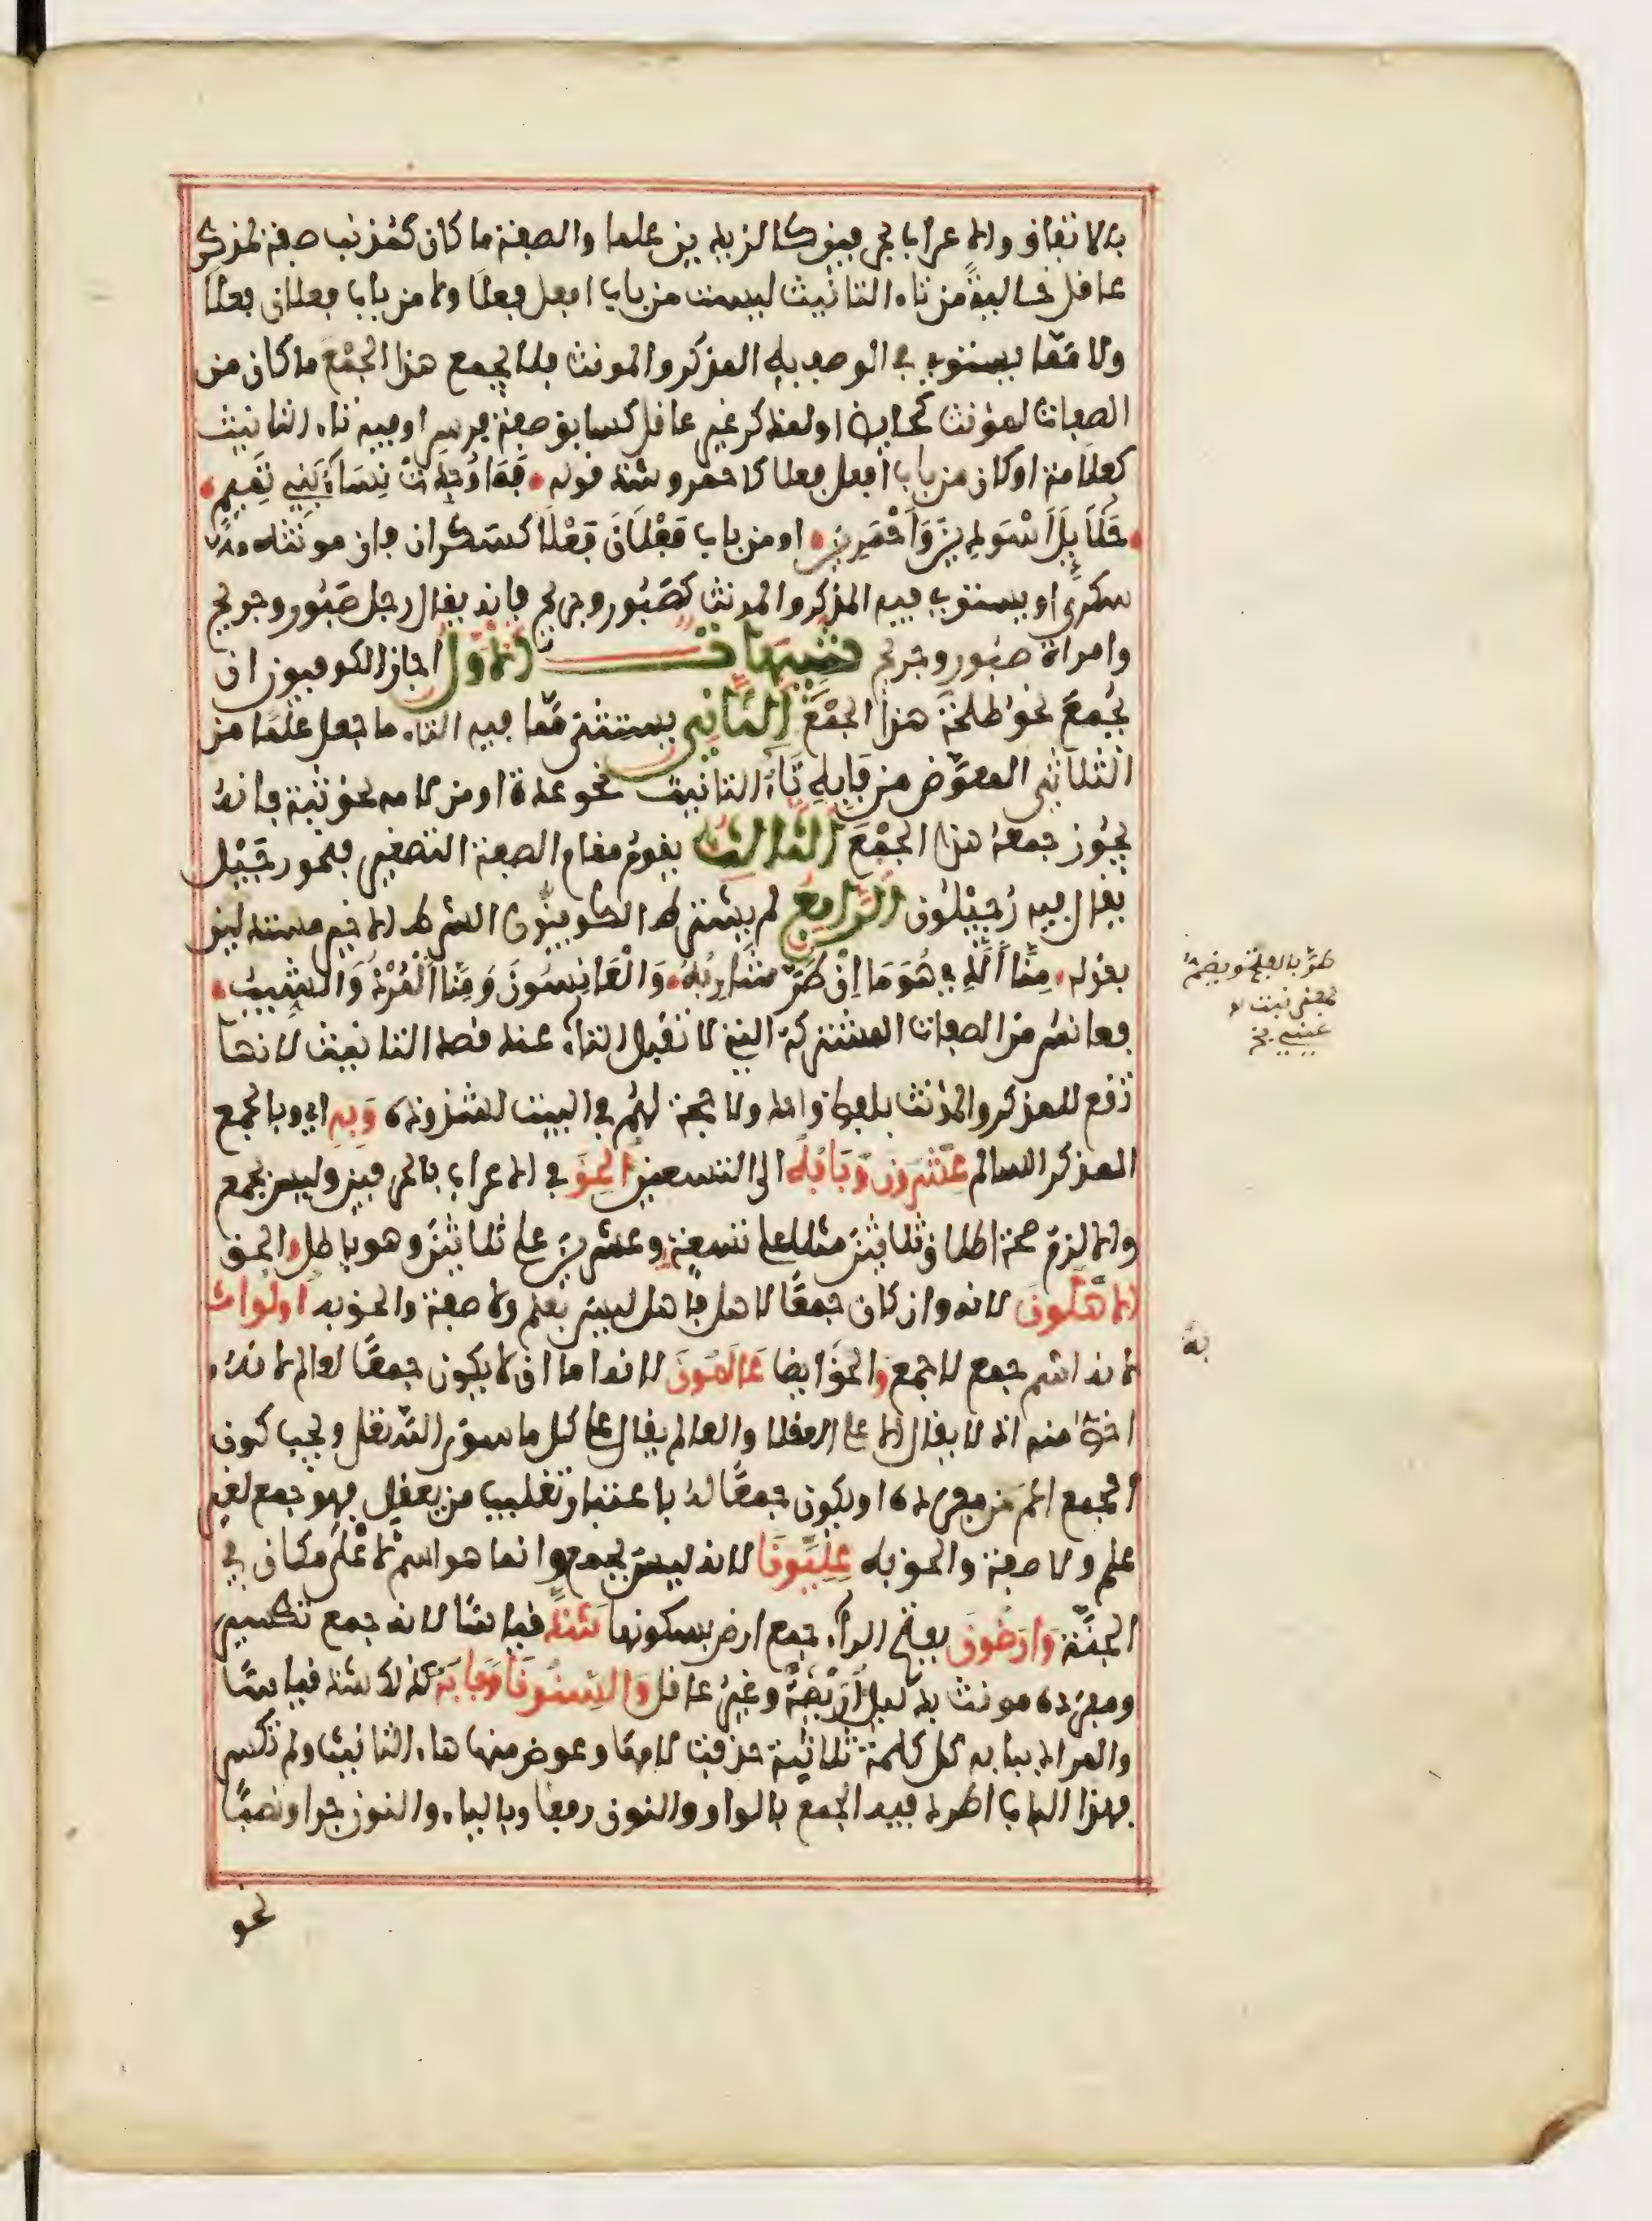 بالاتفاق والاعراب بالحرفين كالزيدين علما والصفة ما كان كمذنب صفة لمذكر
عاقل خالية من تاء التانيث ليست من باب افعل فعلا ولا من باب فعلان فعلى
ولا مما يستوي في الوصف به المذكر والمونث فلا يجمع هذا الجمع ما كان من
الصفات لمؤنث كحايض او لمذكر غير عاقل كسابق صفة فرس او فيه تاء التانيث
كعلامة او كان من باب افعل فعلا كاحمر وشذ قوله فَمَا وُجِدَتْ نِسَاءُ بَنِي تَمِيمٍ
حَلَائِلَ اَسْوَدِينَ وَاَحْمَرِينَ او من باب فَعْلَانَ فَعْلَى كسكران فان مونثه
سكرى او يستوي فيه المذكر والمونث كصَبُور وجريح فانه يقال رجل صَبُور وجريح
وامراة صبور وجريح تنبيهات الاول اجاز الكوفيون ان
يُجمعَ نحو طلحَة هذا الجمْعَ الثاني يستثنى ممّا فيه التاء ما جعل علمًا من
الثلاثي المعوّض من فَايِهِ تَاءُ التانيث نحو عدة او من لامه نحو ثبة فانهُ
يجُوز جمعهُ هذا الجمْعَ الثالث يقومُ مقام الصفة التصغير فنحو رجَيْل
يقال فيه رُجَيْلُون الرابع لم يشترط الكوفيّون الشرط الاخير مستدلين
بقوله مِنَّا الَّذِي هُوَ مَا اِنْ طَرَّ شَارِبُهُ وَالْعَانِسُونَ وَمِنَّا الْمُرْدُ وَالشِّيبُ
فعانس من الصفات المشتركة التي لا تقبل التاء عند قصد التانيث لانها
تقع للمذكر والمؤنث بلفظ واحد ولا حجة لهم في البيت لشذوذه وَبِهِ اي وبالجمع
المذكر السالم عِشْرُونَ وَبَابُهُ الى التسعين اُلْحِقَ في الاعراب بالحرفين وليس بجمع
والا لزم صحة اطلاق ثلاثين مثلا على تسعة وعشرين على ثلاثين وهو باطل والحق
الاَهْلُونَ لانه وان كان جمعًا لاهل فاهل ليس بعلم ولا صفة والحق به اولوا
لانه اسم جمع لا جمع والحق ايضا عَالَمُونَ لانه اما ان لا يكون جمعًا لعالم لانهُ
اخصّ منه اذ لا يقال الا على العقلا والعالم يقال على كل ما سوى اللّه تعلى ويجب كون
الجمع اعم من مفرده او يكون جمعًا لهُ باعتبار تغليب من يعقل فهو جمع لغير
علم ولا صفة والحق به عِلِّيُّونَا لانه ليس بجمع وانما هو اسم لاَعْلَى مكان في
الجنَّة وَاَرَضُونَ بفتح الراء جمع ارض بسكونها شَذَّ قياسًا لانه جمع تكسير
ومفرده مونث بدليل اُرَيْضَةٌ وغير عاقل وَالسِّنُونَا وَبَابُهُ كذلك شذ قياسًا
والمراد ببابه كل كلمة ثلاثية حذفت لامها وعوض منها هاء التانيث ولم تكسر
فهذا الباب اطرد فيه الجمع بالواو والنون رفعا وبالياء والنون جرا ونصبًا
نحو
طرَّ بالفتح وبضمّ
بمعنى نبت
عيني
به